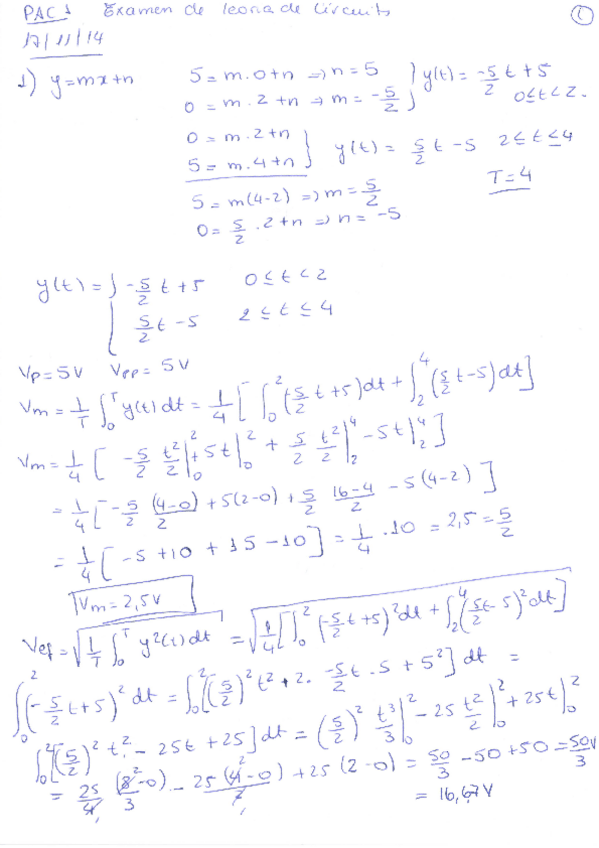 PAC 1 Examen de teoria de Circuits
17/11/14
1) y=mx+n 5=m.0+n ⇒ n=5 } y(t) = -5/2 t+5
0 = m.2+n ⇒ m = -5/2 0≤t<2.
0 = m.2+n
5 = m.4+n } y(t) = 5/2 t -5 2≤t≤4
5 = m(4-2) ⇒ m = 5/2 T=4
0 = 5/2 .2+n ⇒ n = -5
y(t) = { -5/2 t+5 0≤t<2
5/2 t -5 2≤t≤4
Vp=5V Vpp= 5V
Vm = 1/T ∫_0^T y(t) dt = 1/4 [ ∫_0^2 (-5/2 t+5)dt + ∫_2^4 (5/2 t-5)dt]
Vm = 1/4 [ -5/2 t²/2 |_0^2 + 5t|_0^2 + 5/2 t²/2 |_2^4 - 5t|_2^4 ]
= 1/4 [ -5/2 (4-0)/2 + 5(2-0) + 5/2 16-4/2 - 5(4-2) ]
= 1/4 [ -5 +10 + 15 -10] = 1/4 .10 = 2,5 = 5/2
Vm = 2,5V
Vef = √(1/T ∫_0^T y²(t) dt) = √(1/4 [∫_0^2 (-5/2 t+5)² dt + ∫_2^4 (5/2 t-5)² dt])
∫_0^2 (-5/2 t+5)² dt = ∫_0^2 [(5/2)² t² + 2. -5/2 t .5 + 5²] dt =
∫_0^2 [(5/2)² t² - 25t + 25] dt = (5/2)² t³/3 |_0^2 - 25 t²/2 |_0^2 + 25t|_0^2
= 25/4 (8-0)/3 - 25 (4-0)/2 + 25 (2-0) = 50/3 - 50 + 50 = 50V/3
= 16,67V